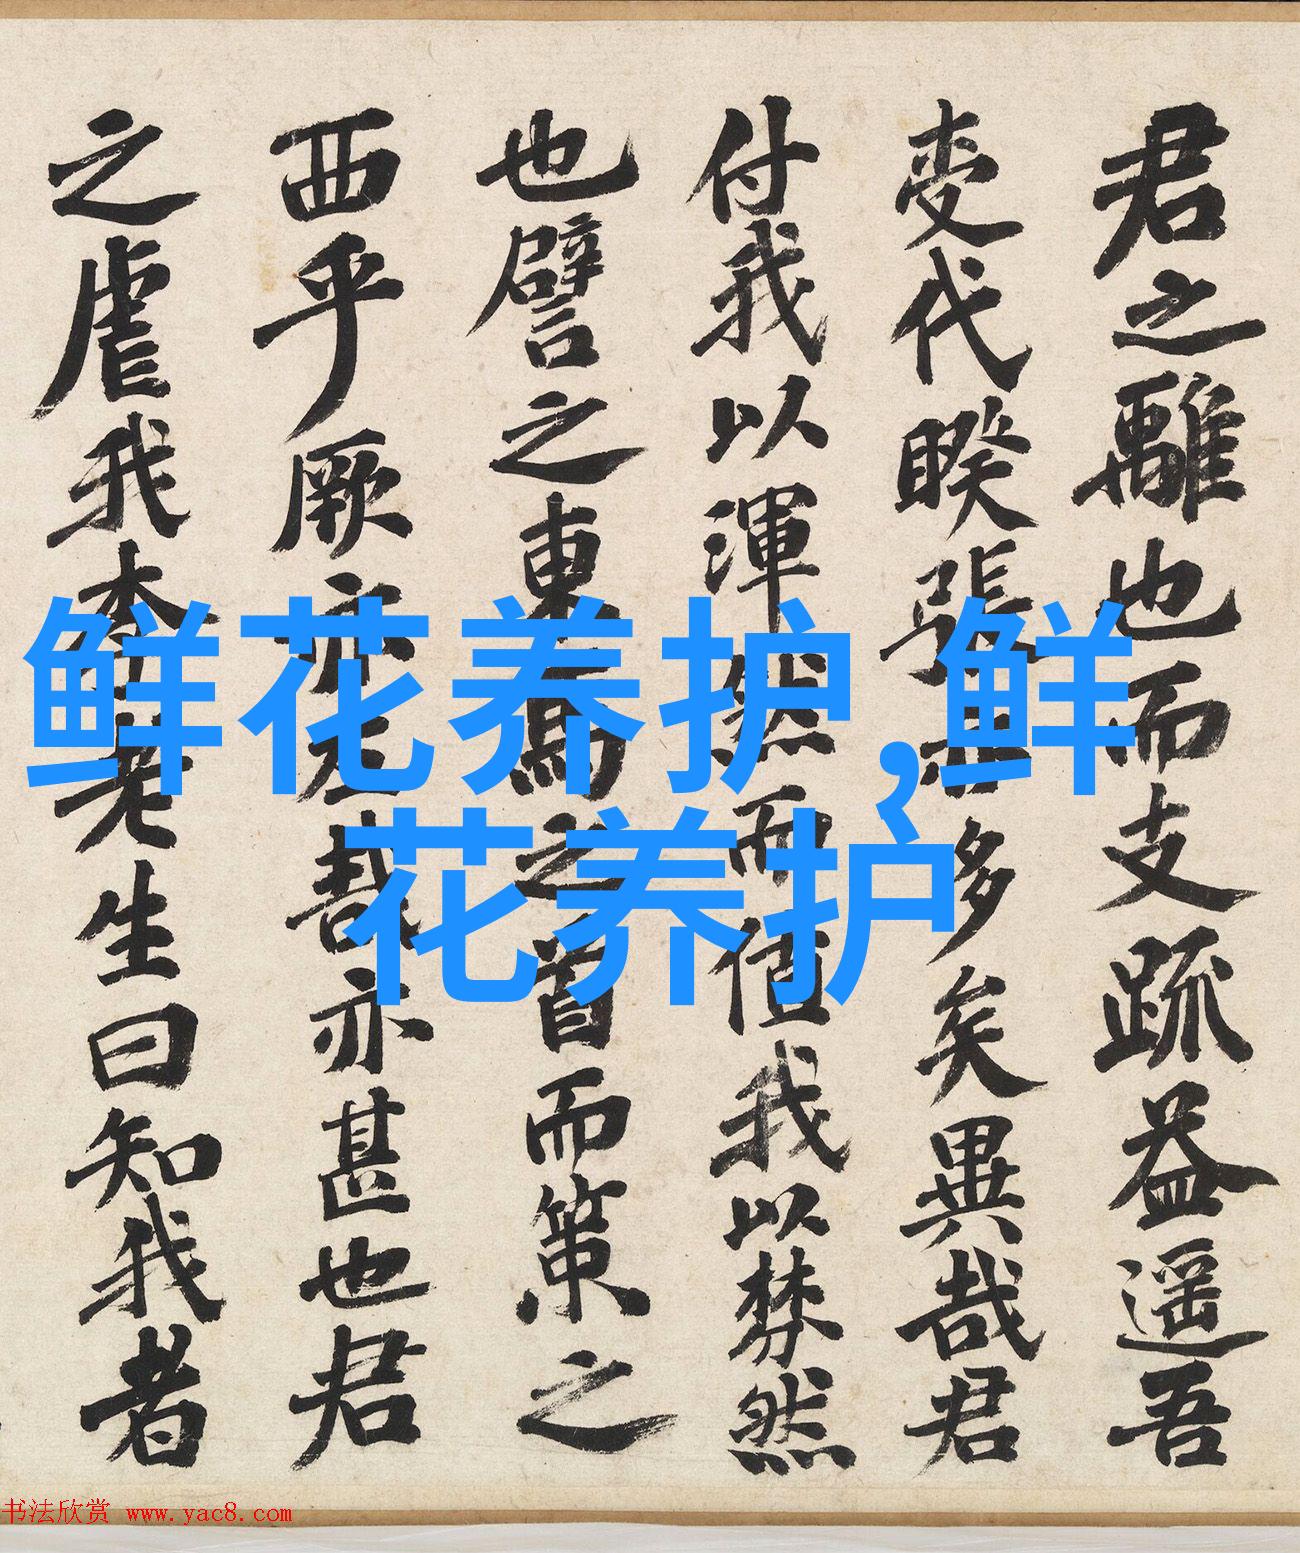 君之離也而支疏益遥吾
变代睽張亦多矣異哉君
付我以渾然而值我以棼然
也譬之東馬之首而策之
西乎厥亦左哉亦甚也君
之虐我本老生曰知我者
鲜花养护,鲜
花养护
书法欣赏 www.yac8.com